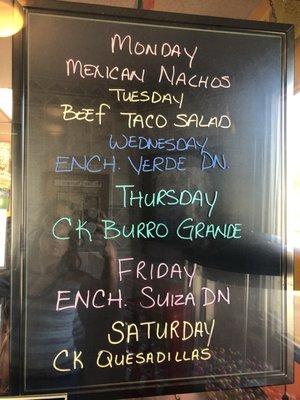 Monday
Mexican Nachos
Tuesday
Beef Taco Salad
Wednesday
Ench. Verde Dn.
Thursday
CK Burro Grande
Friday
Ench. Suiza Dn
Saturday
CK Quesadillas